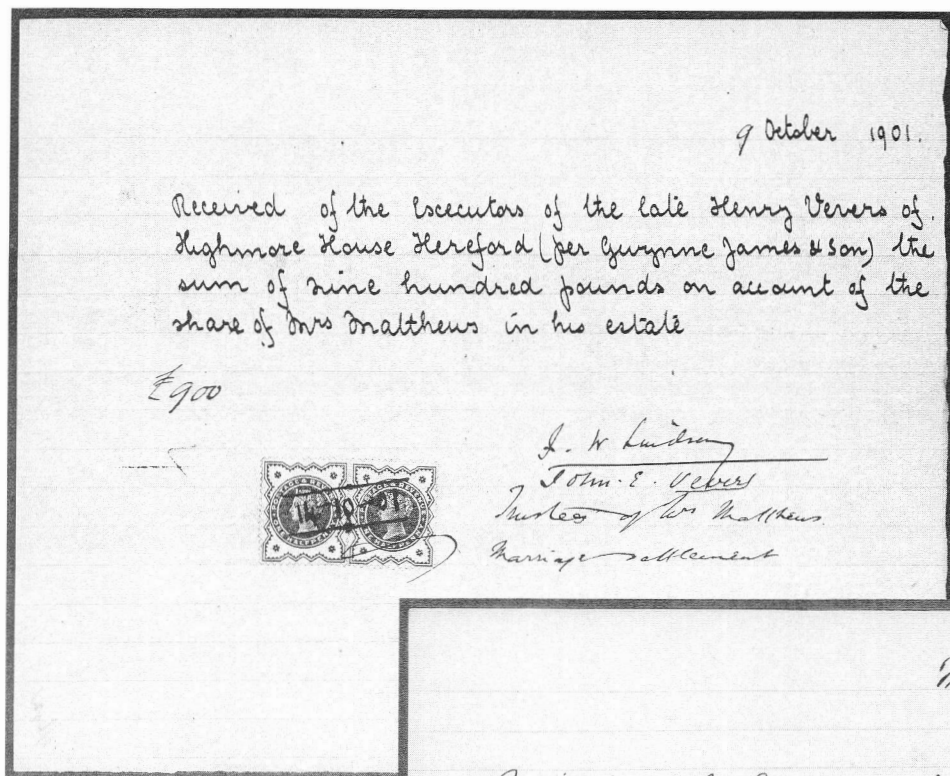 9 October 1901.
Received of the Excecutors of the late Henry Vevers of
Highmore House Hereford (per Gwynne James & Son) the
sum of nine hundred pounds on account of the
share of Mrs Matthews in his estate
£900
J. W. Lindsay
John. E. Vevers
Trustees of Mrs Matthews
Marriage settlement
14 10 01